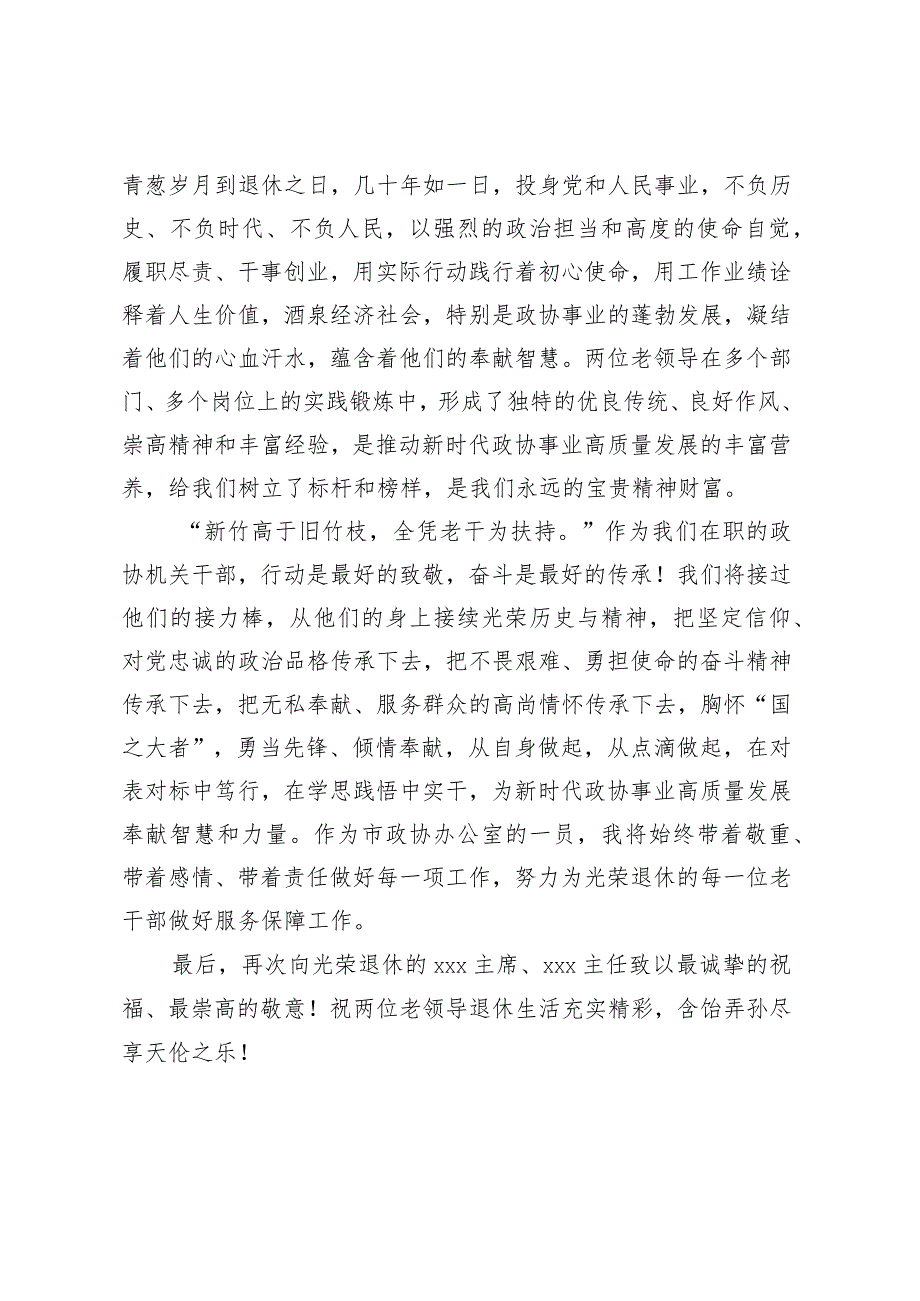 青葱岁月到退休之日，几十年如一日，投身党和人民事业，不负历
史、不负时代、不负人民，以强烈的政治担当和高度的使命自觉，
履职尽责、干事创业，用实际行动践行着初心使命，用工作业绩诠
释着人生价值，酒泉经济社会，特别是政协事业的蓬勃发展，凝结
着他们的心血汗水，蕴含着他们的奉献智慧。两位老领导在多个部
门、多个岗位上的实践锻炼中，形成了独特的优良传统、良好作风、
崇高精神和丰富经验，是推动新时代政协事业高质量发展的丰富营
养，给我们树立了标杆和榜样，是我们永远的宝贵精神财富。
“新竹高于旧竹枝，全凭老干为扶持。”作为我们在职的政
协机关干部，行动是最好的致敬，奋斗是最好的传承！我们将接过
他们的接力棒，从他们的身上接续光荣历史与精神，把坚定信仰、
对党忠诚的政治品格传承下去，把不畏艰难、勇担使命的奋斗精神
传承下去，把无私奉献、服务群众的高尚情怀传承下去，胸怀“国
之大者”，勇当先锋、倾情奉献，从自身做起，从点滴做起，在对
表对标中笃行，在学思践悟中实干，为新时代政协事业高质量发展
奉献智慧和力量。作为市政协办公室的一员，我将始终带着敬重、
带着感情、带着责任做好每一项工作，努力为光荣退休的每一位老
干部做好服务保障工作。
最后，再次向光荣退休的 xxx 主席、xxx 主任致以最诚挚的祝
福、最崇高的敬意！祝两位老领导退休生活充实精彩，含饴弄孙尽
享天伦之乐！